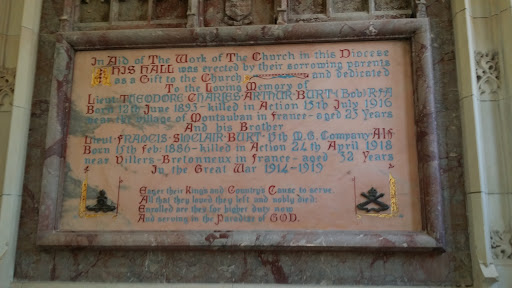 In Aid of The Work of The Church in this Diocese
THIS HALL was erected by their sorrowing parents
as a Gift to the Church and dedicated
To the Loving Memory of
Lieut: THEODORE CHARLES ARTHUR BURT (Bob) R.F.A
Born 12th June 1893 - killed in Action 15th July 1916
near the village of Montauban in France - aged 23 Years
And his Brother
Lieut: FRANCIS SINCLAIR BURT 15th M.G. Company A.I.F.
Born 15th Feb: 1886 - killed in Action 24th April 1918
near Villers-Bretonneux in France - aged 32 Years
In the Great War 1914-1919
Eager their King's and Country's Cause to serve,
All that they loved they left and nobly died:
Enrolled are they for higher duty now
And serving in the Paradise of GOD.